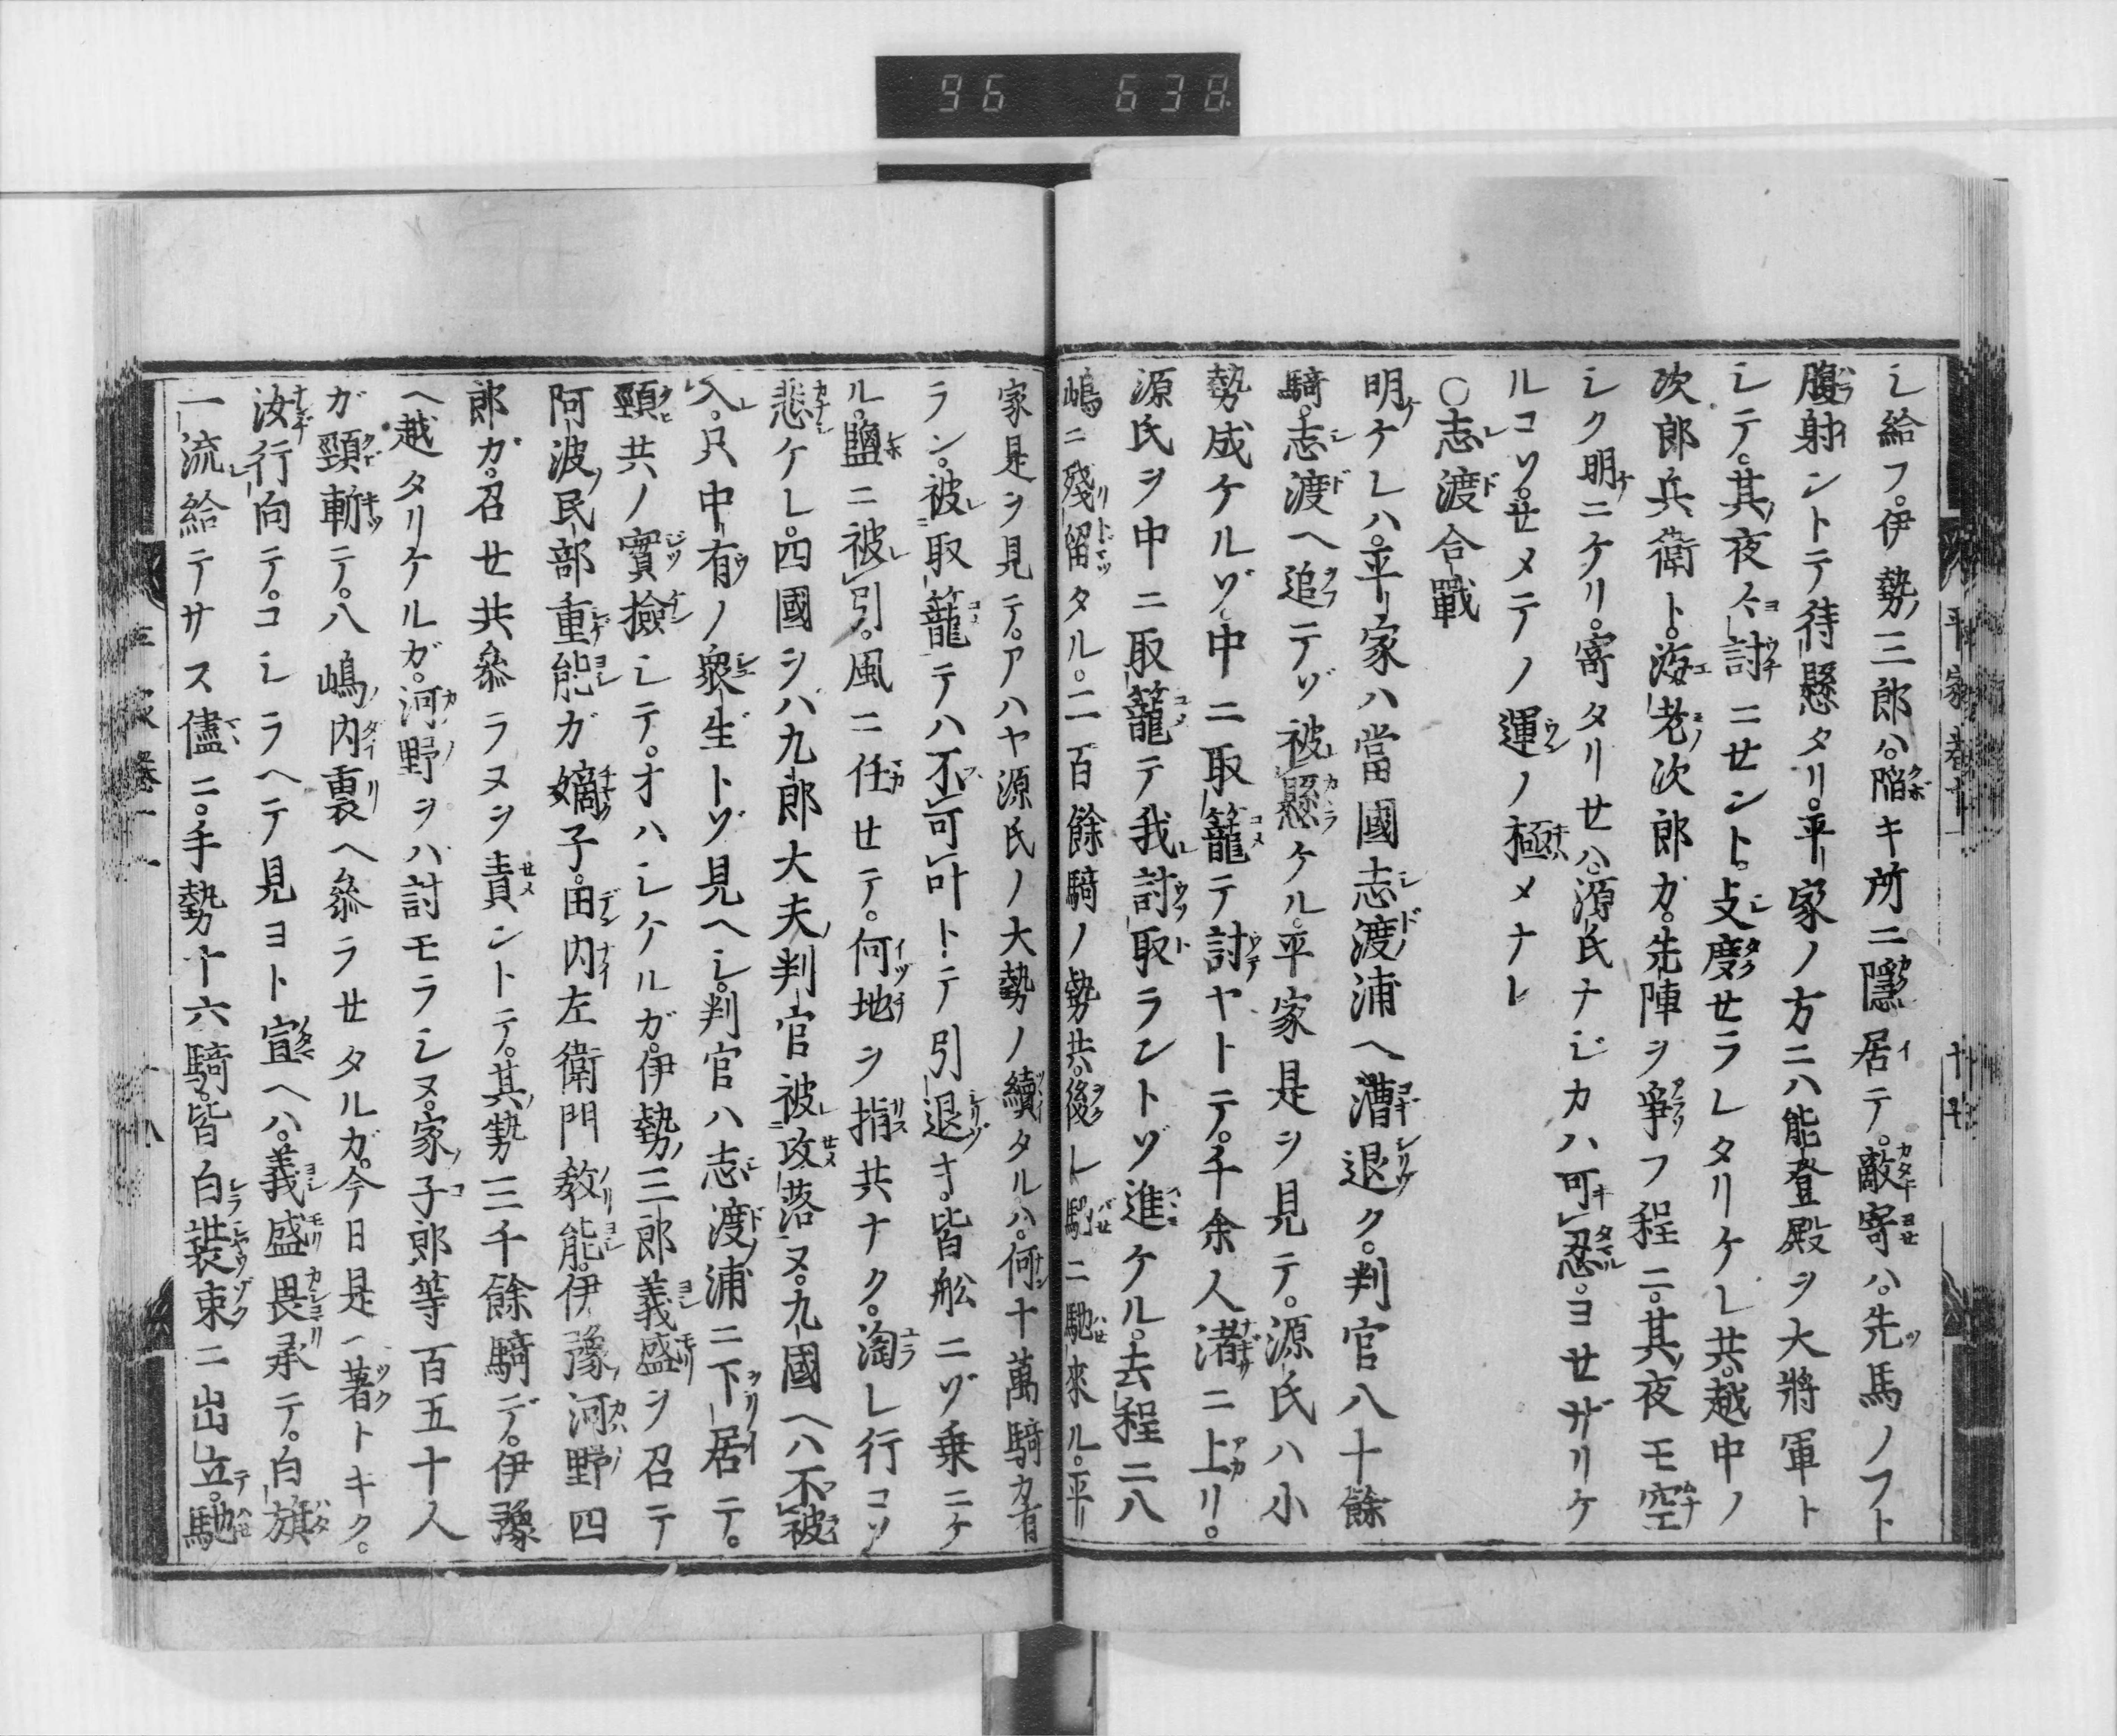 96 638
シ給フ。伊勢三郎ハ。陷キ所ニ隱居テ。敵寄ハ。先馬ノフト
腹射ントテ待懸タリ。平家ノ方ニハ能登殿ヲ大將軍ト
シテ。其夜夜討ニセント。支度セラレタリケレ共。越中ノ
次郎兵衛ト。海老次郎ガ。先陣ヲ爭フ程ニ。其夜モ空
シク明ニケリ。寄タリせハ。源氏ナジカハ可忍。ヨせザリケ
ルコソ。せメテノ運ノ極メナレ
〇志渡合戰
明ケレハ。平家ハ當國志渡浦ヘ漕退ク。判官八十餘
騎。志渡ヘ追テゾ被懸ケル。平家是ヲ見テ。源氏ハ小
勢成ケルゾ。中ニ取籠テ討ヤトテ。千余人渚ニ上リ。
源氏ヲ中ニ取籠テ我討取ラントゾ進ケル。去程ニ八
嶋ニ殘留タル。二百餘騎ノ勢共。後レ馳ニ馳來ル。平
家是ヲ見テ。アハヤ源氏ノ大勢ノ續タルハ。何十萬騎カ有
ラン。被取籠テハ不可叶トテ引退キ。皆舩ニゾ乗ニケ
ル。鹽ニ被引。風ニ任せテ。何地ヲ指共ナク。淘レ行コソ
悲ケレ。四國ヲバ九郎大夫判官被攻落ヌ。九國ヘハ不被
入。只中有ノ衆生トゾ見ヘシ。判官ハ志渡浦ニ下居テ。
頸共ノ實撿シテ。オハシケルガ。伊勢三郎義盛ヲ召テ
阿波民部重能ガ嫡子。田内左衛門教能。伊豫河野四
郎ガ。召せ共叅ラヌヲ責ントテ。其勢三千餘騎デ。伊豫
ヘ越タリケルガ。河野ヲハ討モラシヌ。家子郎等百五十人
ガ頸斬テ。八嶋内裏ヘ叅ラせタルガ。今日是ヘ著トキク。
汝行向テ。コシラヘテ見ヨト宣ヘハ。義盛畏承テ。白旗
一流給テサス儘ニ。手勢十六騎。皆白裝束ニ出立。馳